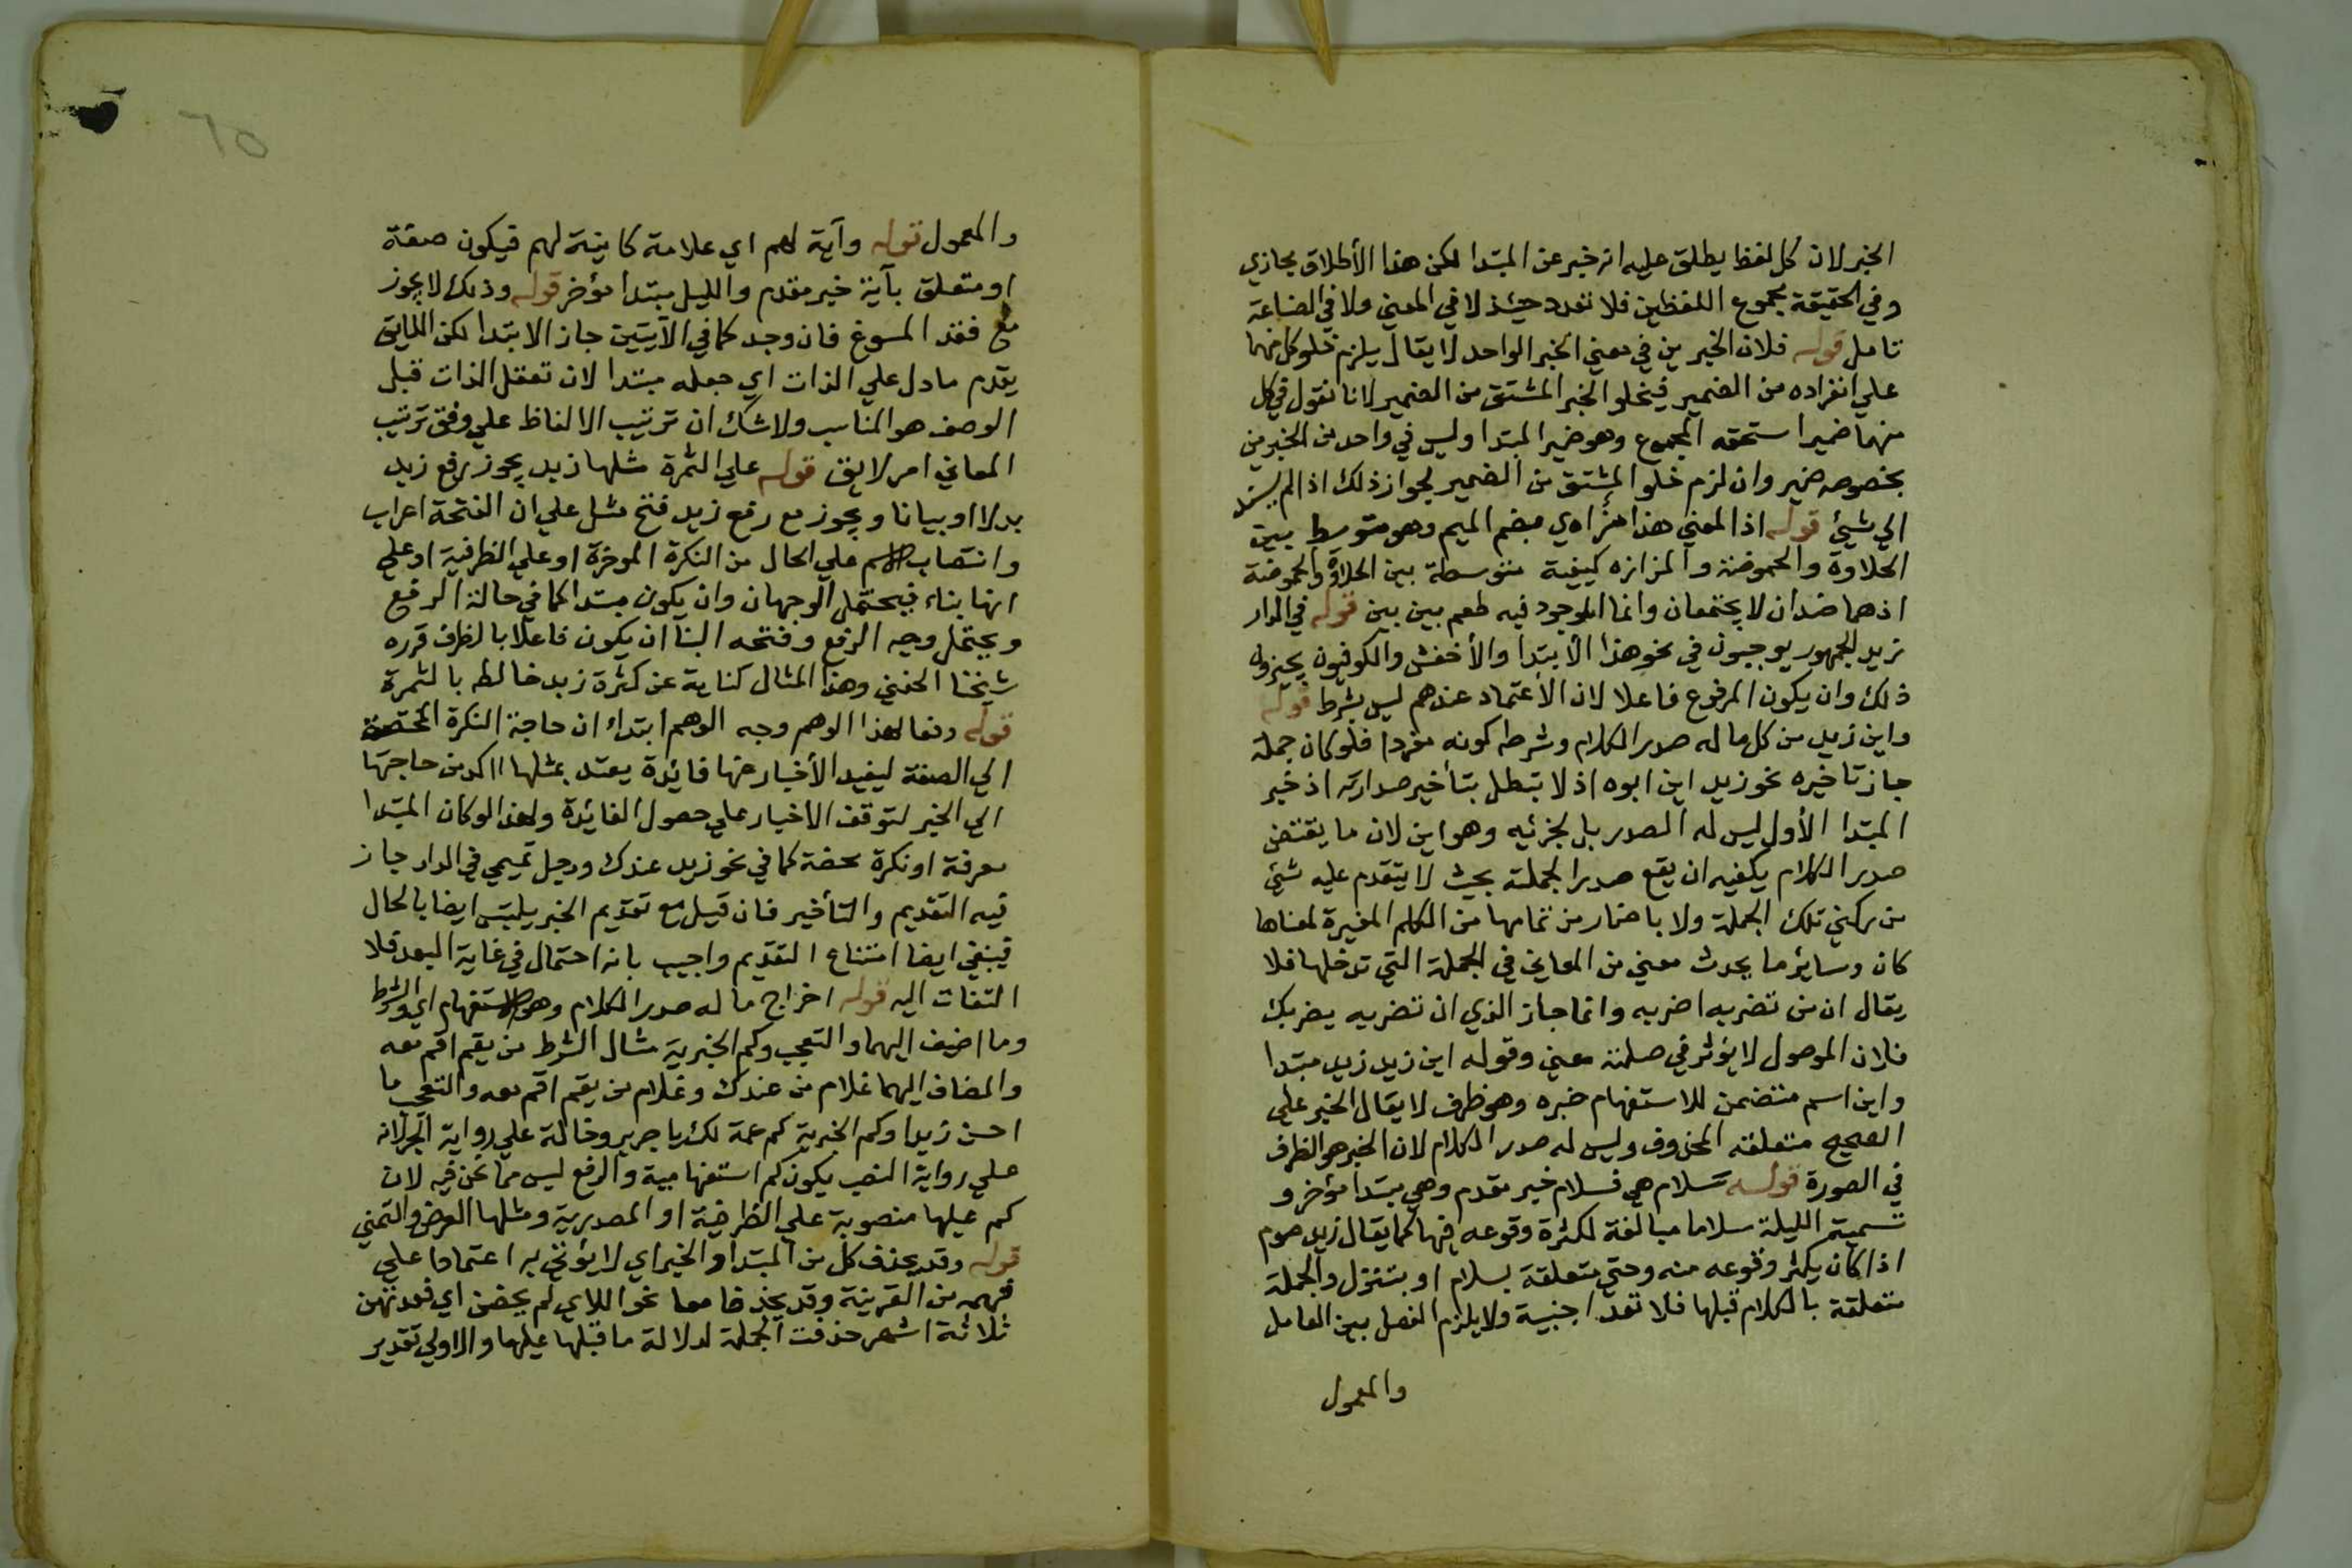 الخبر لان كل لفظ يطلق عليه انه خبر عن المبتدا لكن هذا الأطلاق مجازي
وفي الحقيقة مجموع اللفظين فلا تعدد حينئذ لا في المعني ولا في الصناعة
تامل قوله فلان الخبرين في معني الخبر الواحد لا يقال يلزم خلو كل منهما
علي انفراده من الضمير فيخلو الخبر المشتق من الضمير لانا نقول في كل
منهما ضمير استحقه المجموع وهو ضمير المبتدا وليس في واحد من الخبرين
بخصوصه ضمير وان لزم خلو المشتق من الضمير لجواز ذلك اذا لم يسند
الي شيئ قوله اذ المعني هذا مُزّ اي بضم الميم وهو متوسط بين
الحلاوة والحموضة والمزازه كيفية متوسطة بين الحلاوة والحموضة
اذ هما ضدان لا يجتمعان وانما الموجود فيه طعم بين بين قوله في الدار
زيد الجمهور يوجبون في نحو هذا الأبتدا والأخفش والكوفيون يجيزون
ذلك وان يكون المرفوع فاعلا لان الأعتماد عندهم ليس بشرط قوله
واين زيد من كل ما له صدر الكلام وشرطه كونه مفردا فلو كان جملة
جاز تاخيره نحو زيد اين ابوه اذ لا تبطل بتأخير صدارته اذ خبر
المبتدا الأول ليس له الصدر بل لجزئيه وهو اين لان ما يقتضي
صدر الكلام يكفيه ان يقع صدر الجملة بحيث لا يتقدم عليه شيئ
من ركني تلك الجملة ولا ما صار من تمامها من الكلم المغيرة لمعناها
كان وسائر ما يحدث معني من المعاني في الجملة التي تدخلها فلا
يقال ان من تضربه اضربه وانما جاز الذي ان تضربه يضربك
فلان الموصول لا يؤثر في صلته معني وقوله اين زيد زيد مبتدا
واين اسم متضمن للاستفهام خبره وهو ظرف لا يقال الخبر علي
الصحيح متعلقه المحذوف وليس له صدر الكلام لان الخبر هو الظرف
في الصورة قوله سلام هي فسلام خبر مقدم وهي مبتدا مؤخر و
تسميتم الليلة سلاما مبالغة لكثرة وقوعه فيها كما يقال زيد صوم
اذا كان يكثر وقوعه منه وحتي متعلقة بسلام او بتنزل والجملة
متعلقة بالكلام قبلها فلا تعد اجنبية ولا يلزم الفصل بين العامل
والمعمول
والمعمول قوله وآية لهم اي علامة كاينة لهم فيكون صفة
او متعلق بآية خبر مقدم والليل مبتدا مؤخر قوله وذلك لا يجوز
مع فقد المسوغ فان وجد كما في الآيتين جاز الابتدا لكن اللايق
يقدم ما دل علي الذات اي جعله مبتدا لان تعقل الذات قبل
الوصف هو المناسب ولا شك ان ترتيب الالفاظ علي وفق ترتيب
المعاني امر لايق قوله علي التمرة مثلها زيد يجوز برفع زيد
بدلا او بيانا ويجوز مع رفع زيد فتح مثل علي ان الفتحة اعراب
وانتصاب الاسم علي الحال من النكرة الموخرة او علي الظرفية او علي
انها بناء فيحتمل الوجهان وان يكون مبتدا كما في حالة الرفع
ويحتمل وجه الرفع وفتحه البنا ان يكون فاعلا بالظرف قرره
شيخنا الحفني وهذا المثال كناية عن كثرة زبد خالط بالثمرة
قوله دفعا لهذا الوهم وجه الوهم ابتداء ان حاجة النكرة المختصة
الي الصفة ليفيد الأخبار عنها فائدة يعتد بمثلها اكد من حاجتها
الي الخبر لتوقف الاخبار علي حصول الفائدة ولهذا لو كان المبتدا
معرفة او نكرة محضة كما في نحو زيد عندك ورجل تميمي في الدار جاز
فيه التقديم والتأخير فان قيل مع تقديم الخبر يلتبس ايضا بالحال
فينبغي ايضا امتناع التقديم واجيب بانه احتمال في غاية البعد فلا
التفات اليه قوله اخراج ما له صدر الكلام وهو الاستفهام اي والشرط
وما اضيف اليهما والتعجب وكم الخبرية مثال الشرط من يقم اقم معه
والمضاف اليهما غلام من عندك وغلام من يقم اقم معه والتعجب ما
احسن زيدا وكم الخبرية كم عمة لك يا جرير وخالة علي رواية الجر لانه
علي رواية النصب يكون كم استفهامية والرفع ليس مما نحن فيه لان
كم عيلها منصوبة علي الظرفية او المصدرية ومثلها العرض والتمني
قوله وقد يحذف كل من المبتدا والخبر اي لا يؤتي به اعتمادا علي
فهمه من القرينة وقد يحذفا معا نحو اللاي لم يحضن اي فعدتهن
ثلاثة اشهر حذفت الجملة لدلالة ما قبلها عليها والاولي تقدير
٦٥